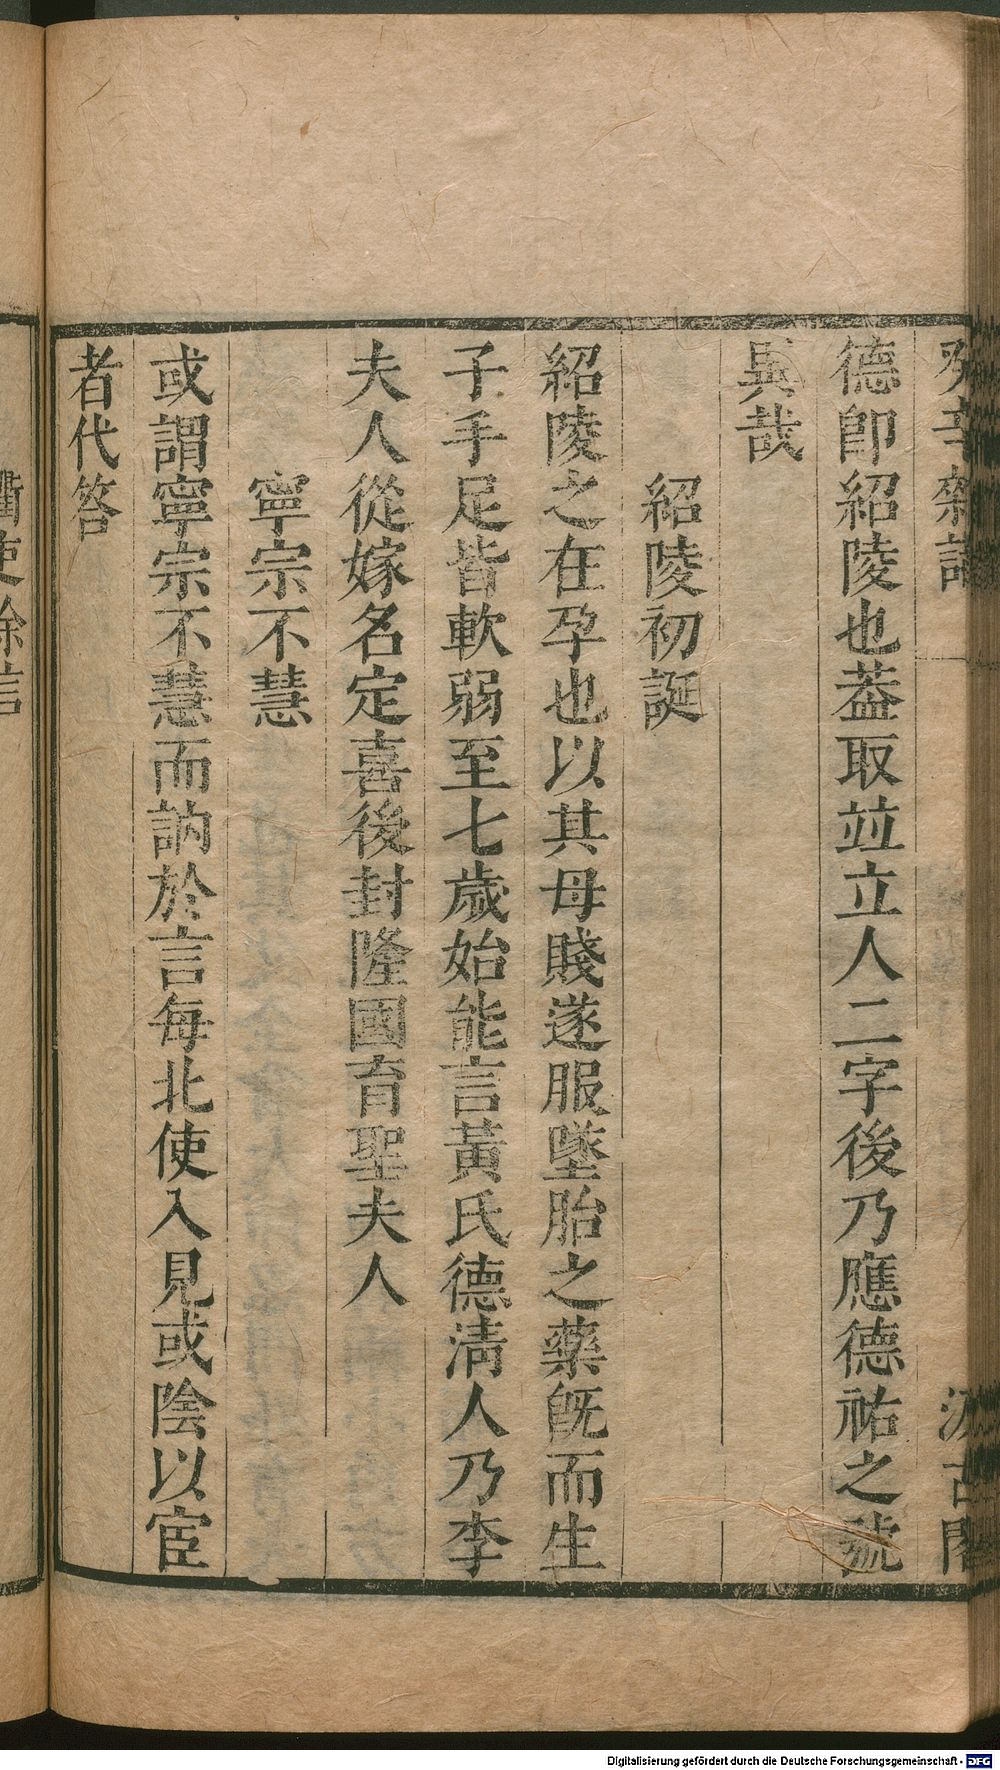 癸辛雜識
汲古閣
德卽紹陵也葢取竝立人二字後乃應德祐之號
異哉
紹陵初誕
紹陵之在孕也以其母賤遂服墜胎之藥旣而生
子手足皆軟弱至七歲始能言黃氏德淸人乃李
夫人從嫁名定喜後封隆國育聖夫人
寧宗不慧
或謂寧宗不慧而訥於言每北使入見或陰以宦
者代答
Digitalisierung gefördert durch die Deutsche Forschungsgemeinschaft - DFG